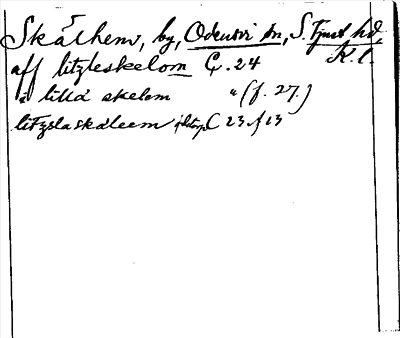 Skälhem, by, Odensvi sn, S. Tjust hd,
K. l.
aff litzleskelom C. 24
i lilla skelom " (f. 27.)
litzslaskäleem C 23 f 13